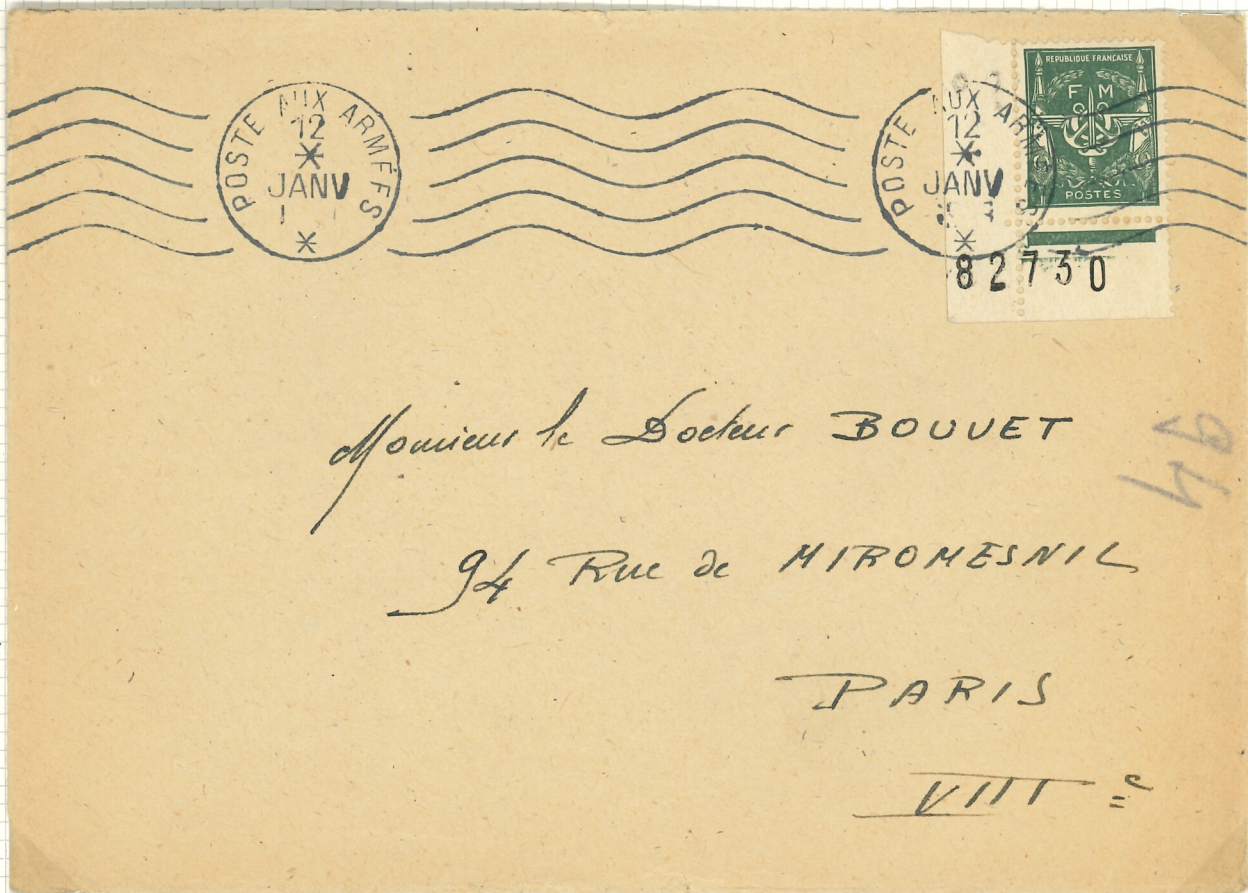 POSTE AUX ARMÉES
12
JANV
POSTE AUX ARMÉES
12
JANV
REPUBLIQUE FRANÇAISE
F M
POSTES
82730
Monsieur le Docteur BOUVET
94 Rue de MIROMESNIL
PARIS
VIII e
94